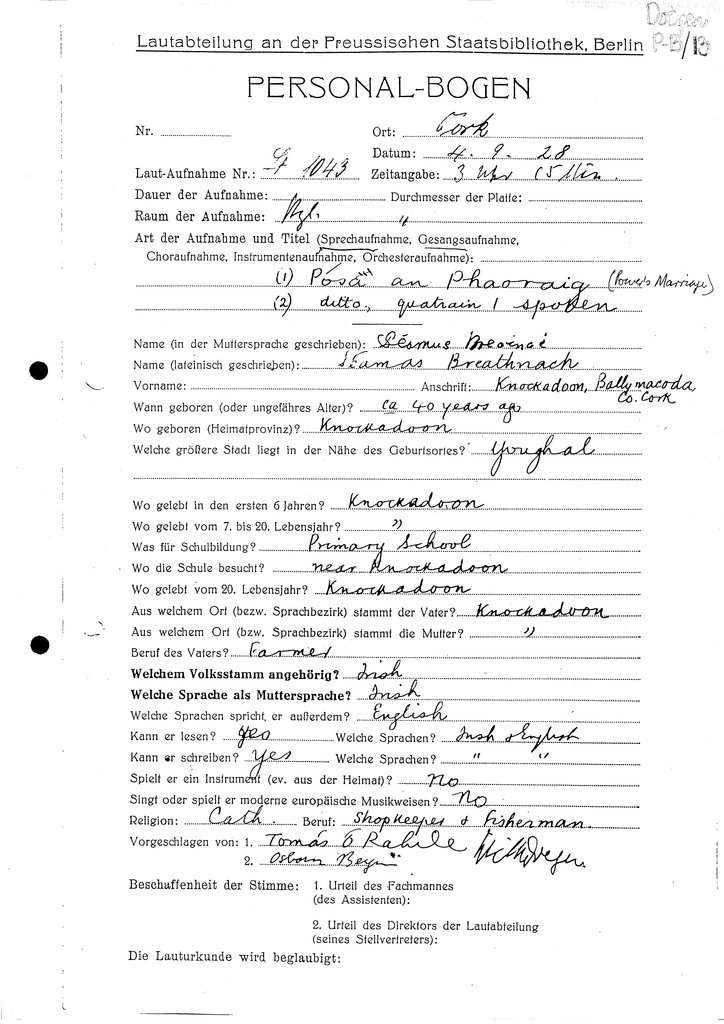 P-B/13
Lautabteilung an der Preussischen Staatsbibliothek, Berlin
PERSONAL-BOGEN
Nr. Ort: Cork
Datum: 4. 9. 28
Laut-Aufnahme Nr.: 1043 Zeitangabe: 3 Uhr 15 Min.
Dauer der Aufnahme: Durchmesser der Platte:
Raum der Aufnahme: "
Art der Aufnahme und Titel (Sprechaufnahme, Gesangsaufnahme,
Choraufnahme, Instrumentenaufnahme, Orchesteraufnahme):
(1) Pósa an Phaoraig (Power's Marriage)
(2) ditto, quatrain 1 spoken
Name (in der Muttersprache geschrieben): Séamus
Name (lateinisch geschrieben): Séamas Breathnach
Vorname: Anschrift: Knockadoon, Ballymacoda,
Co. Cork
Wann geboren (oder ungefähres Alter)? ca 40 years ago
Wo geboren (Heimatprovinz)? Knockadoon
Welche größere Stadt liegt in der Nähe des Geburtsortes? Youghal
Wo gelebt in den ersten 6 Jahren? Knockadoon
Wo gelebt vom 7. bis 20. Lebensjahr? "
Was für Schulbildung? Primary School
Wo die Schule besucht? near Knockadoon
Wo gelebt vom 20. Lebensjahr? Knockadoon
Aus welchem Ort (bezw. Sprachbezirk) stammt der Vater? Knockadoon
Aus welchem Ort (bzw. Sprachbezirk) stammt die Mutter? "
Beruf des Vaters? Farmer
Welchem Volksstamm angehörig? Irish
Welche Sprache als Muttersprache? Irish
Welche Sprachen spricht er außerdem? English
Kann er lesen? yes Welche Sprachen? Irish & English
Kann er schreiben? Yes Welche Sprachen? " "
Spielt er ein Instrument (ev. aus der Heimat)? No
Singt oder spielt er moderne europäische Musikweisen? No
Religion: Cath. Beruf: Shopkeeper & Fisherman.
Vorgeschlagen von: 1. Tomás Ó Rahile
2. Osborn Bergin
Beschaffenheit der Stimme: 1. Urteil des Fachmannes
(des Assistenten):
2. Urteil des Direktors der Lautabteilung
(seines Stellvertreters):
Die Lauturkunde wird beglaubigt: